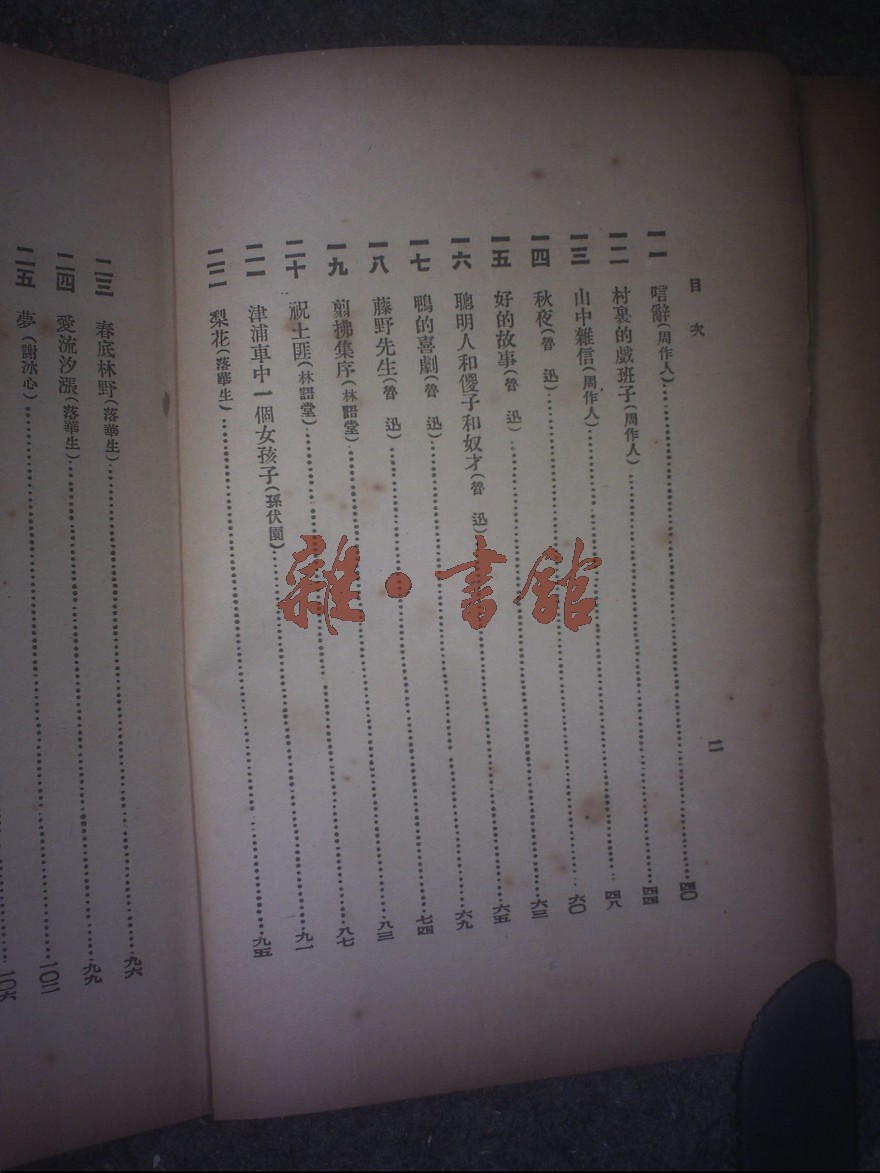 目次
二
一一 唁辭(周作人)……四〇
一二 村裏的戲班子(周作人)……四四
一三 山中雜信(周作人)……四八
一四 秋夜(魯 迅)……六〇
一五 好的故事(魯 迅)……六三
一六 聰明人和傻子和奴才(魯 迅)……六五
一七 鴨的喜劇(魯 迅)……六九
一八 藤野先生(魯 迅)……七四
一九 翦拂集序(林語堂)……八三
二十 祝土匪(林語堂)……八七
二一 津浦車中一個女孩子(孫伏園)……九一
二二 梨花(落華生)……九五
二三 春底林野(落華生)……九六
二四 愛流汐漲(落華生)……九九
二五 夢(謝冰心)……一〇二
一〇六
雜·書館